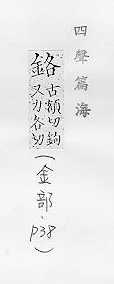 四聲篇海
鉻
古額切鉤
又力各切
(金部·p38)